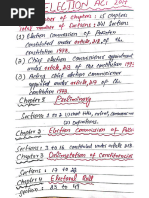 ELECTION ACT 2017
Total number of chapters: 15 chapters
Total number of Sections: 241 Sections
(1) Election commission of Pakistan
constituted under article 218 of
the constitution 1973.
(2) Chief election commissioner appointed
under article 213 of the constitution 1973
(3) Acting chief election commissioner
appointed under article, 217 of
the constitution 1973.
Chapter 1 Preliminary
Sections 1 to 2 (
(2) Definitions.
Chapter 2 Election Commission of Pakistan
Sections 3 to 16 constituted under article 218
Chapter 3 Delimitation of constituencies
Sections: 17 to 22
Chapter 4 Electoral Roll
Section: 23 to 49